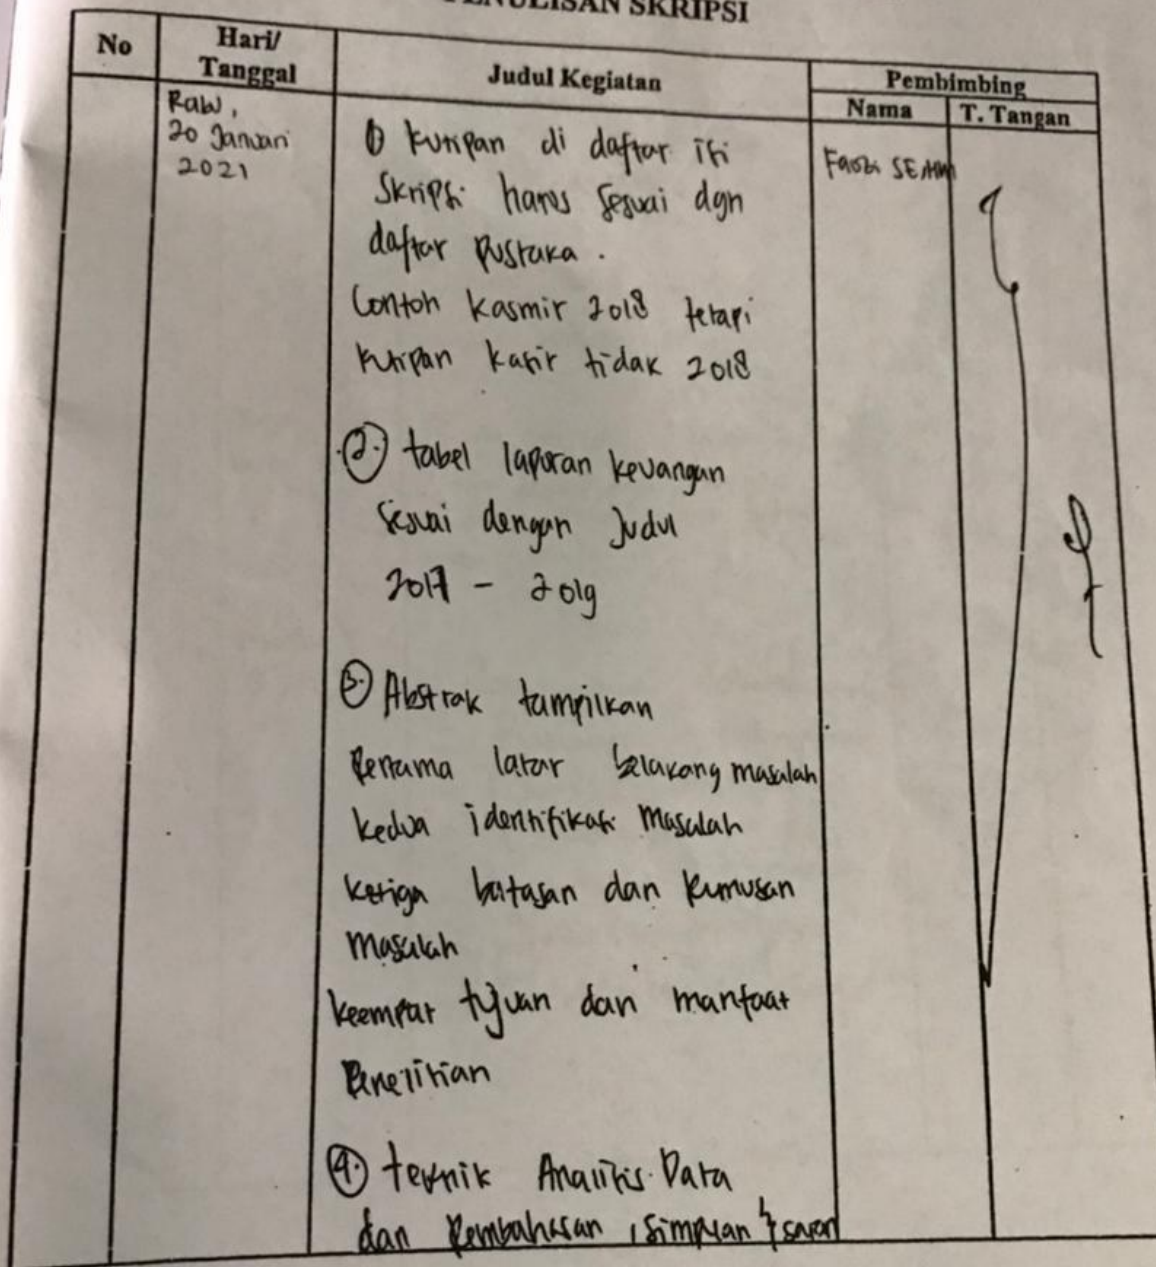 PENULISAN SKRIPSI
No
Hari/
Tanggal
Judul Kegiatan
Pembimbing
Nama
T. Tangan
Rabu,
20 Januari
2021
1) kutipan di daftar isi
Skripsi harus sesuai dgn
daftar pustaka.
Contoh kasmir 2018 tetapi
kutipan kasir tidak 2018
Faozi SE.
2. tabel laporan keuangan
sesuai dengan Judul
2017 - 2019
3. Abstrak tampilkan
Pertama latar belakang masalah
kedua identifikasi masalah
ketiga batasan dan Rumusan
masalah
keempat tujuan dan manfaat
Penelitian
4. teknik Analisis Data
dan Pembahasan, simpulan & saran